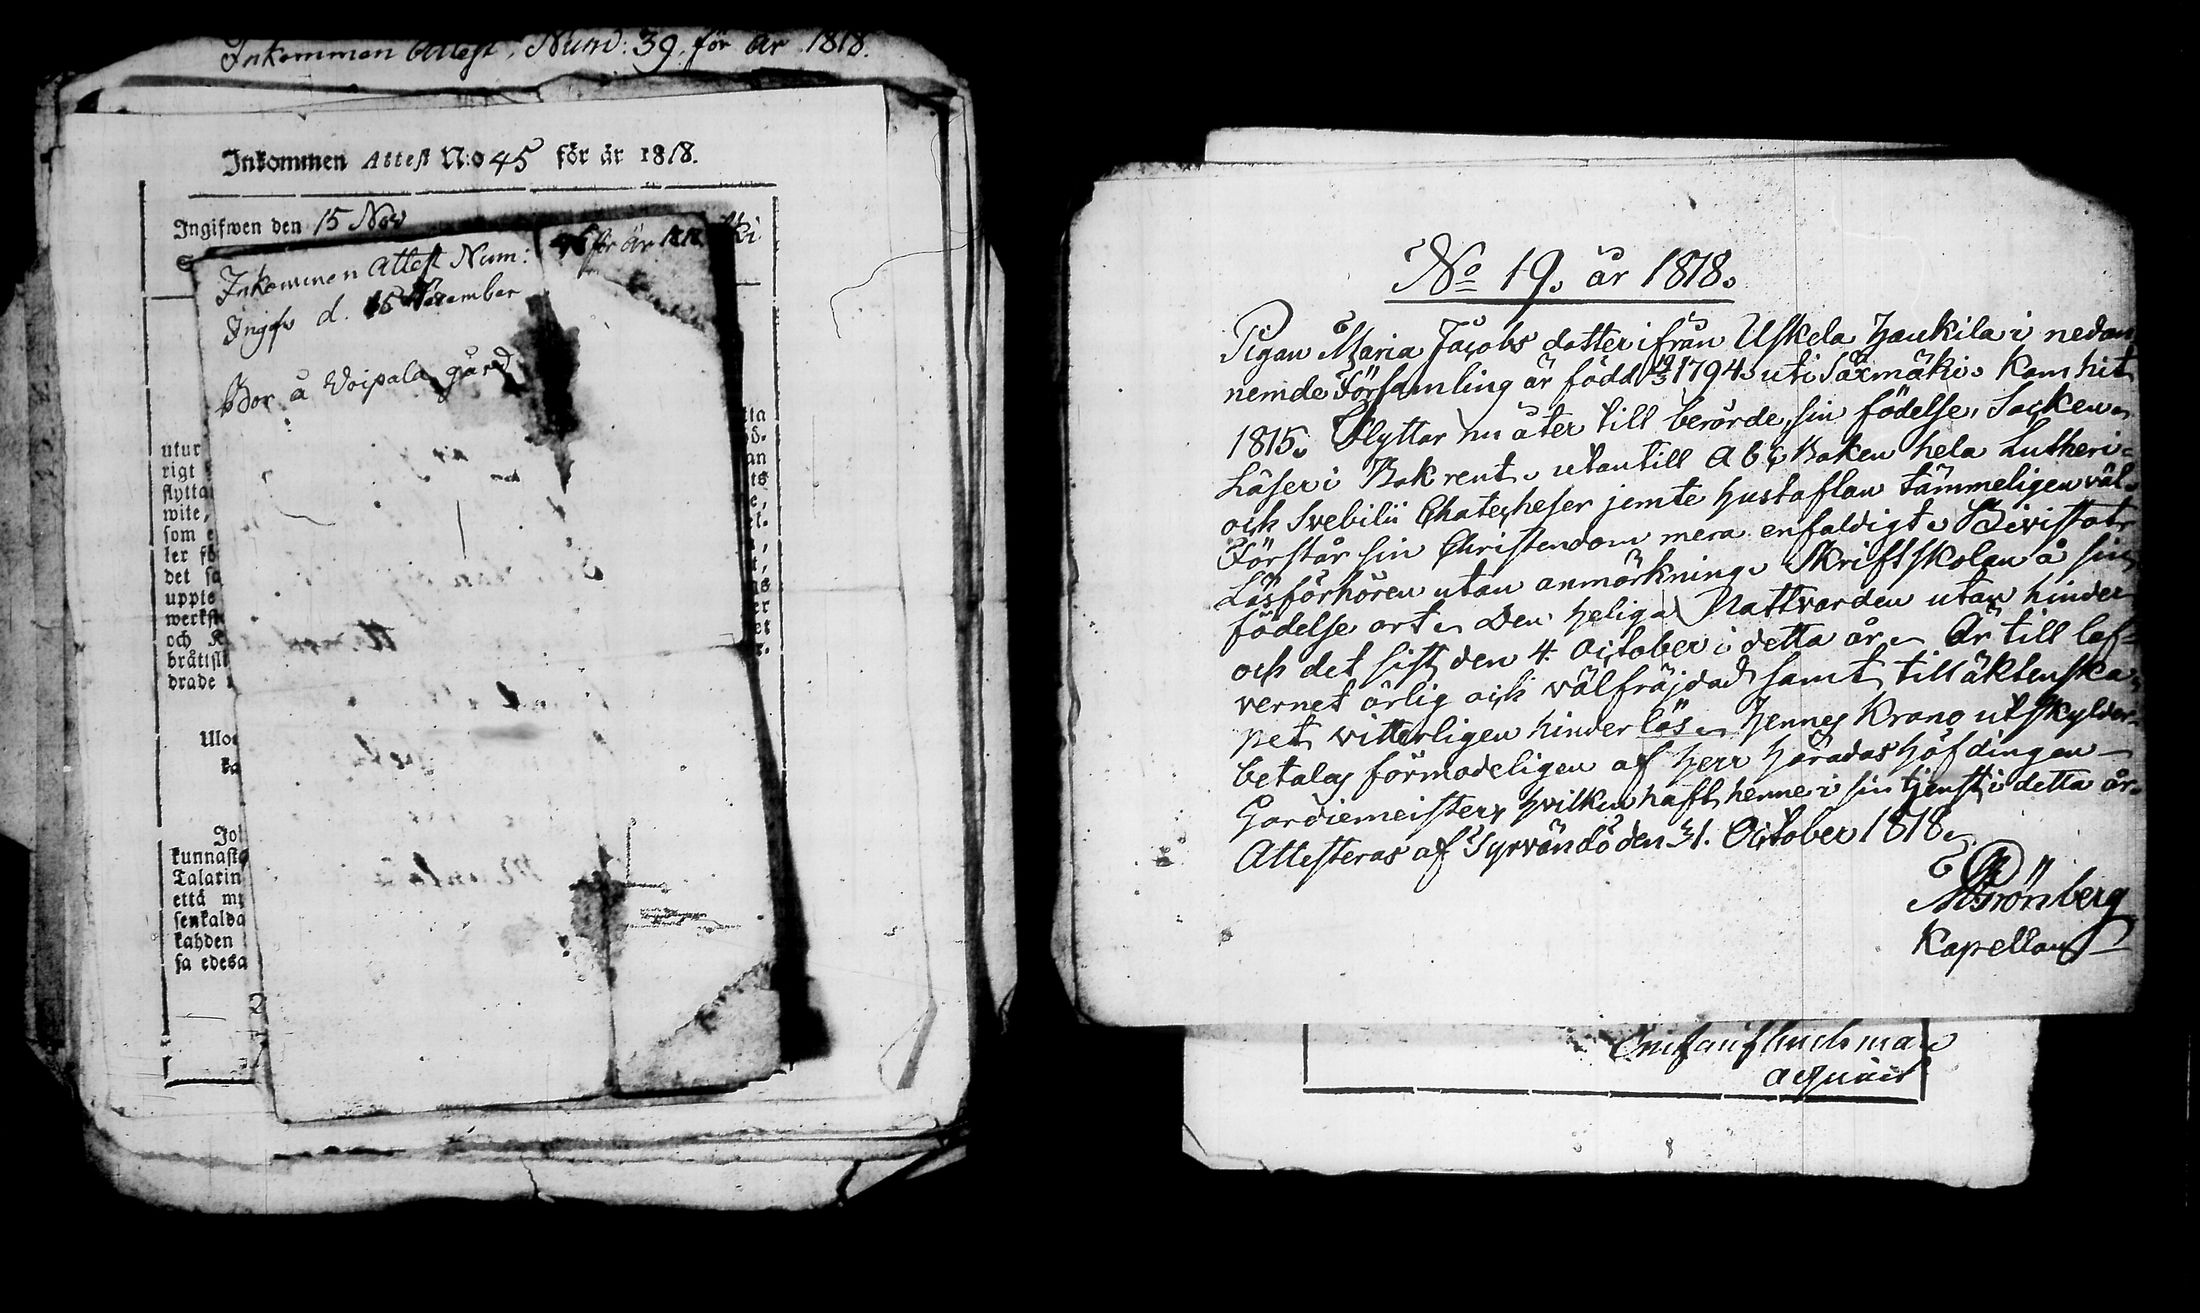 Inkommen Attest, Num: 39. för år 1818.
Inkommen Attest N:o 45 för år 1818.
Ingifwen den 15 Nov
Inkommen Attest Num: för år 1818
Ingifv d. 15 November
Bor å Woipala gård
utur
rigt
flytta
wite,
som e
ler fö
det sa
uppte
werkst
och K
bråttsl
drade
Uloe
ka
Joi
kunnasta
Talarin
että my
senkalda
kahden
sa edesa
No 19. år 1818.
Pigan Maria Jacobs dotter ifrån Uskela Haukila i nedan
nemde Församling är född 1794. uti Säxmäki. Kom hit
1815. Flyttar nu åter till berörde sin födelse Socken.
Läser i Bok rent. utantill A b c Boken hela Lutheri
och Svebilii Chatecheser jemte Hustaflan tämmeligen väl.
Förstår sin Christendom mera enfaldigt. Bivistat
Läsförhören utan anmärkning. Skriftskolan å sin
födelse ort. Den Heliga Nattvarden utan hinder
och det sist den 4. October i detta år. Är till lef-
vernet ärlig och välfräjdad samt till äktenska-
pet vitterligen hinderlös. Hennes Krono utskylder
betalas förmodeligen af Herr Häradshöfdingen
Gardiemeister, hvilken haft henne i sin tjenst i detta år.
Attesteras af Syrvändö den 31. October 1818.
Grönberg
Kapellan